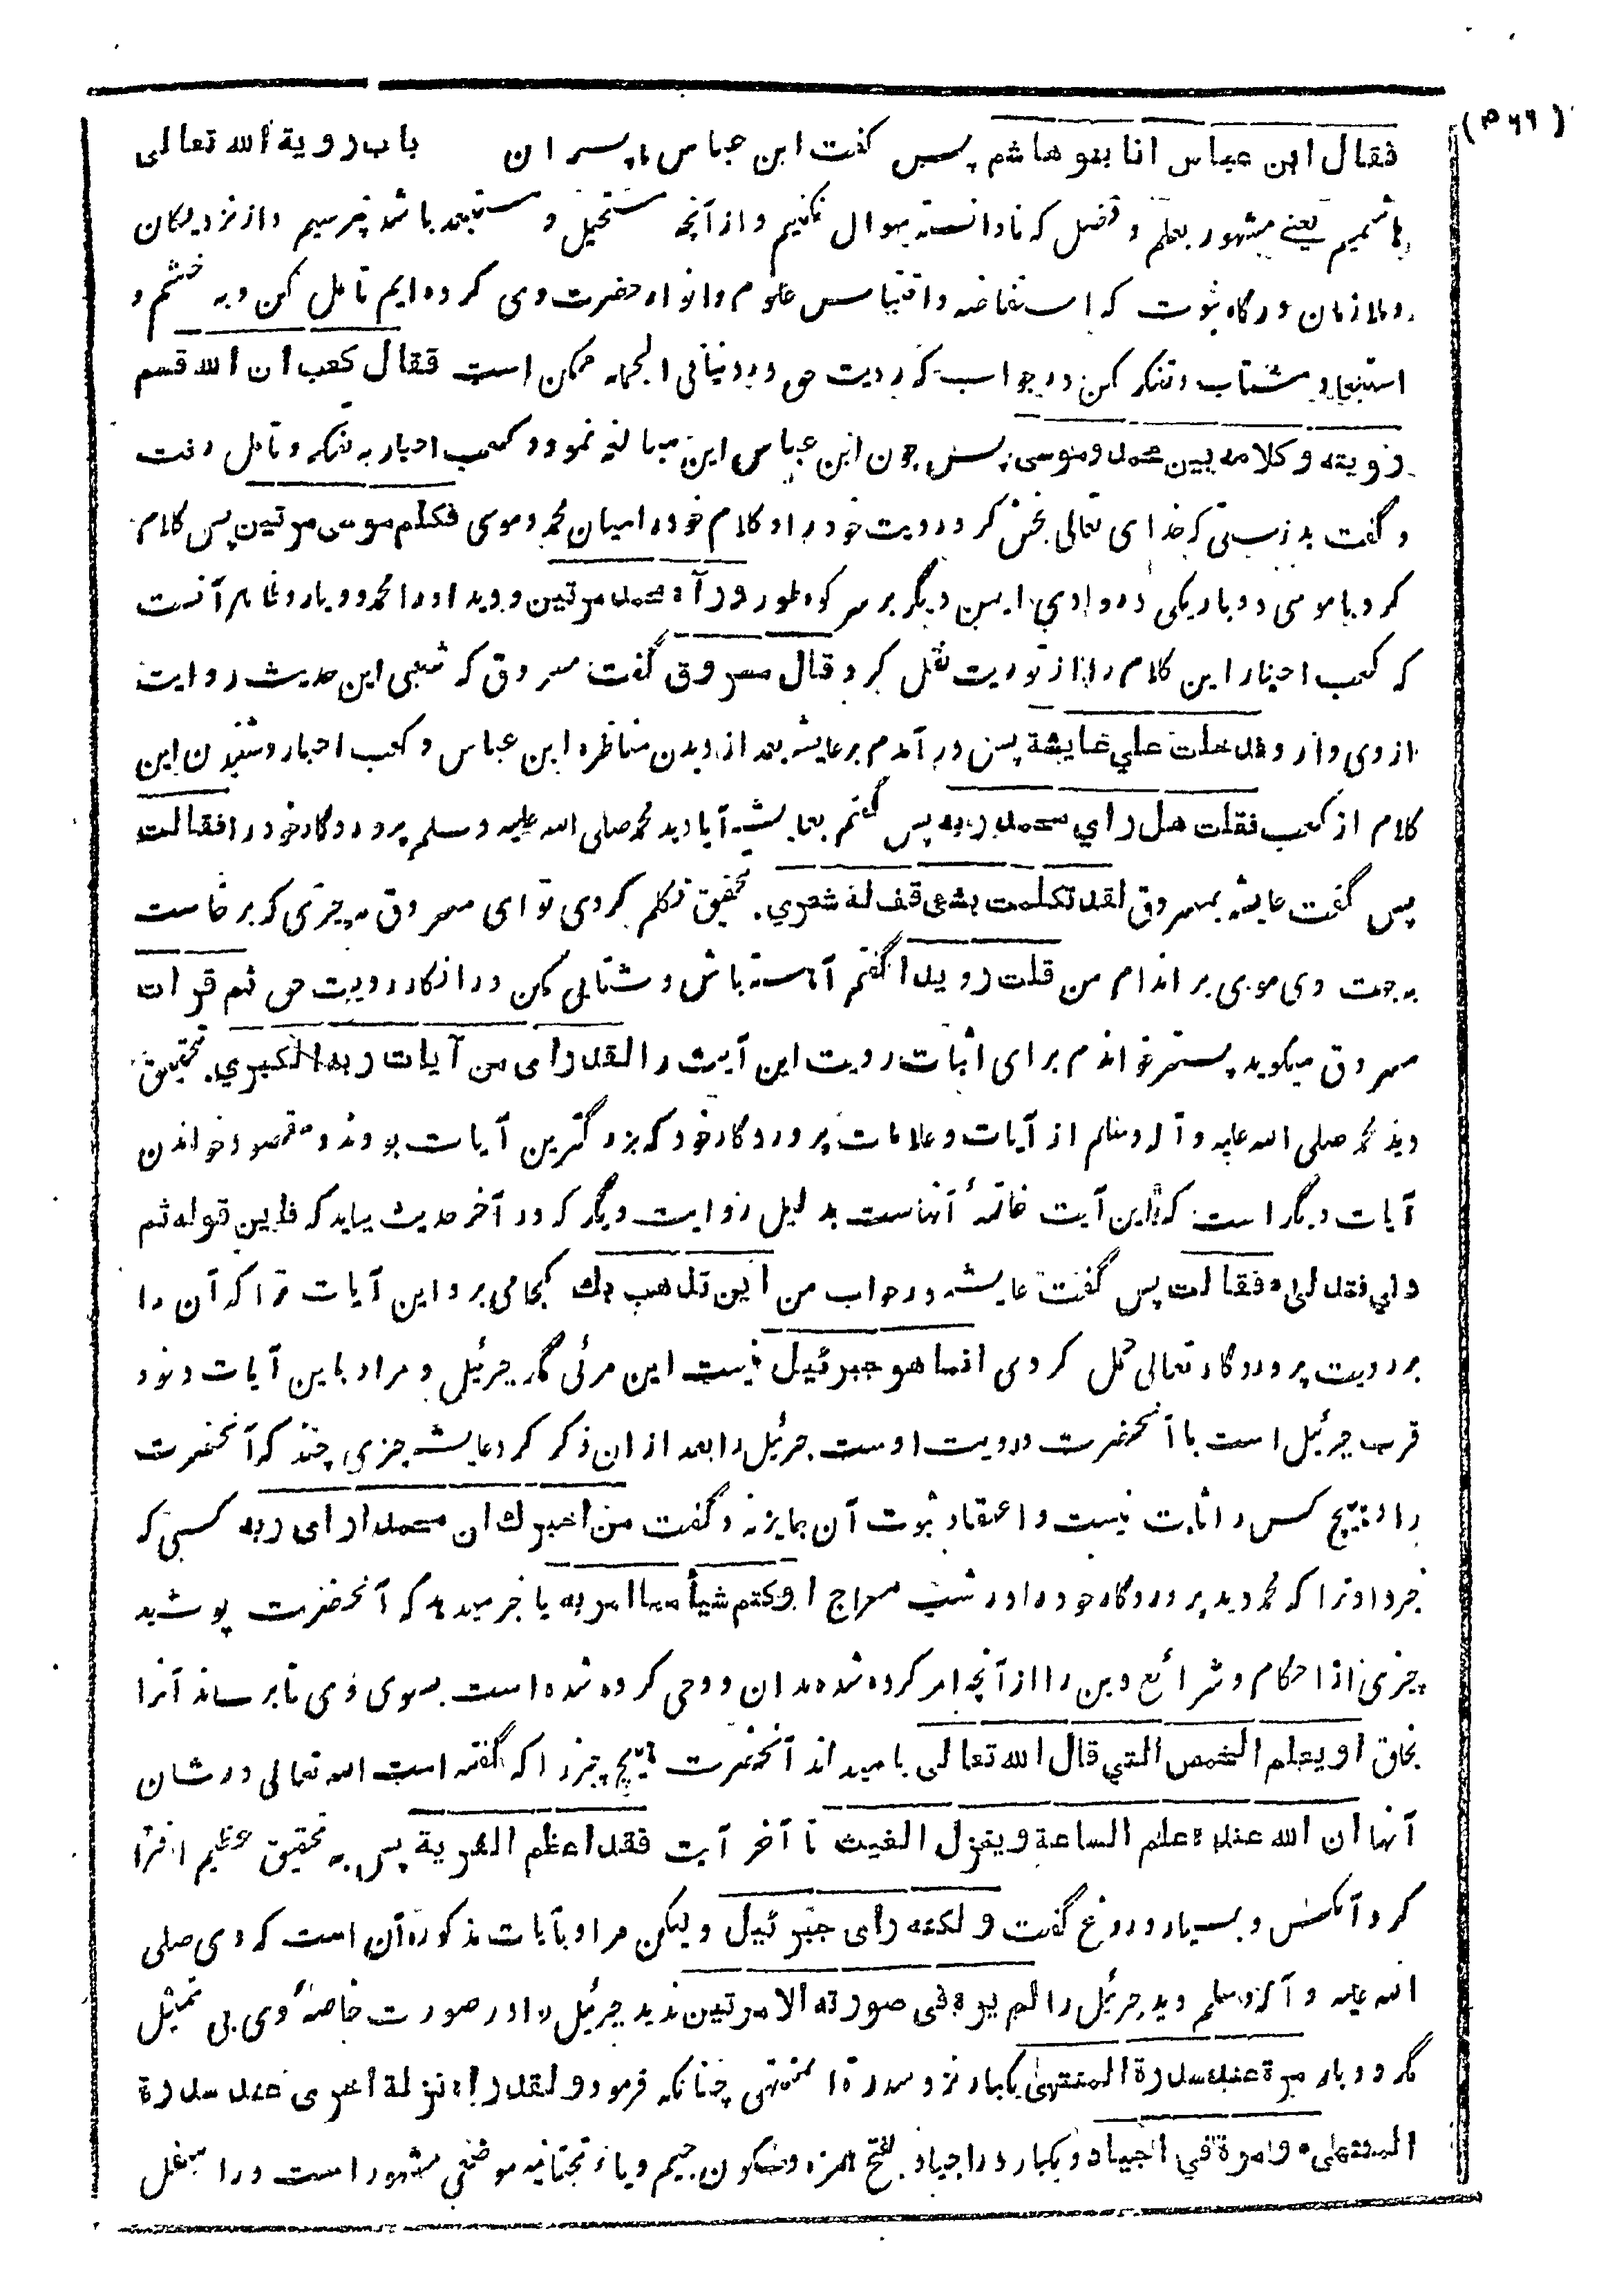 (۴۶۶)
فقال ابن عباس انا بنو هاشم پس گفت ابن عباس ما پسران باب رویة الله تعالی
هاشمیم یعنی مشهور بعلم و فضل که نادانسته سوال نکنیم و از آنچه مستحیل و مستبعد باشد نپرسیم و از نزدیکان
و ملازمان درگاه نبوت که استفاضه و اقتباس علوم و انوار حضرت وی کرده ایم تامل کن و به خشم و
استبعاد مشتاب و تفکر کن در جواب که رویت حق در دنیا فی الجمله ممکن است فقال کعب ان الله قسم
رویته و کلامه بین محمد و موسی پس چون ابن عباس این مبالغه نمود و کعب احبار به تفکر و تامل رفت
و گفت بدرستی که خدای تعالی بخش کرد رویت خود را و کلام خود را میان محمد و موسی فکلم موسی مرتین پس کلام
کرد با موسی دو بار یکی در وادی ایمن دیگر بر سر کوه طور و رآه محمد مرتین و دید او را محمد دو بار و ظاهر آنست
که کعب احبار این کلام را از توریت نقل کرد قال مسروق گفت مسروق که شعبی این حدیث روایت
از وی دارد فدخلت علی عایشة پس در آمدم بر عایشه بعد از دیدن مناظره ابن عباس و کعب احبار و شنیدن این
کلام از کعب فقلت هل رای محمد ربه پس گفتم بعایشه آیا دید محمد صلی الله علیه و سلم پروردگار خود را فقالت
پس گفت عایشه بمسروق لقد تکلمت بشی قف له شعری تحقیق تکلم کردی تو ای مسروق به چیزی که برخاست
به جهت وی موی بر اندام من قلت رویدا گفتم آهسته باش و شتابی مکن در انکار رویت حق ثم قرات
مسروق میگوید پستر خواندم برای اثبات رویت این آیت را لقد رای من آیات ربه الکبری تحقیق
دید محمد صلی الله علیه و آله وسلم از آیات و علامات پروردگار خود که بزرگترین آیات بودند و مقصود خواندن
آیات دیگر است که این آیت خاتمهٔ آنهاست بدلیل روایت دیگر که در آخر حدیث بیاید که فاین قوله ثم
دنی فتدلی فقالت پس گفت عایشه در جواب من این تذهب بك کجا می برد این آیات ترا که آن را
بر رویت پروردگار تعالی حمل کردی انما هو جبرئیل نیست این مرئی مگر جبرئیل و مراد باین آیات دنو و
قرب جبرئیل است با آنحضرت و رویت اوست جبرئیل را بعد از ان ذکر کرد عایشه چیزی چند که آنحضرت
را و هیچ کس را ثابت نیست و اعتقاد ثبوت آن جایز نه و گفت من اخبرك ان محمدا رای ربه کسی که
خبر داد ترا که محمد دید پروردگار خود را در شب معراج او کتم شیأ مما امر به یا خبر میدهد که آنحضرت پوشید
چیزی از احکام و شرائع دین را از آنچه امر کرده شده بدان و وحی کرده شده است بسوی وی تا برساند آنرا
بخلق او یعلم الخمس التی قال الله تعالی یا میداند آنحضرت پنج چیز را که گفته است الله تعالی در شان
آنها ان الله عنده علم الساعة وینزل الغیث تا آخر آیت فقد اعظم الفریة پس به تحقیق عظیم افترا
کرد آنکس و بسیار دروغ گفت و لکنه رأی جبرئیل ولیکن مراد بآیات مذکوره آن است که وی صلی
الله علیه و آله وسلم دید جبرئیل را لم یره فی صورته الا مرتین ندید جبرئیل را در صورت خاصهٔ وی بی تمثیل
مگر دو بار مرة عند سدرة المنتهی یکبار نزد سدرة المنتهی چنانکه فرمود و لقد رآه نزلة اخری عند سدرة
المنتهی و مرة فی اجیاد و یکبار در اجیاد بفتح همزه و سکون جیم و یاء تحتانیه موضعی مشهور است در اسفل